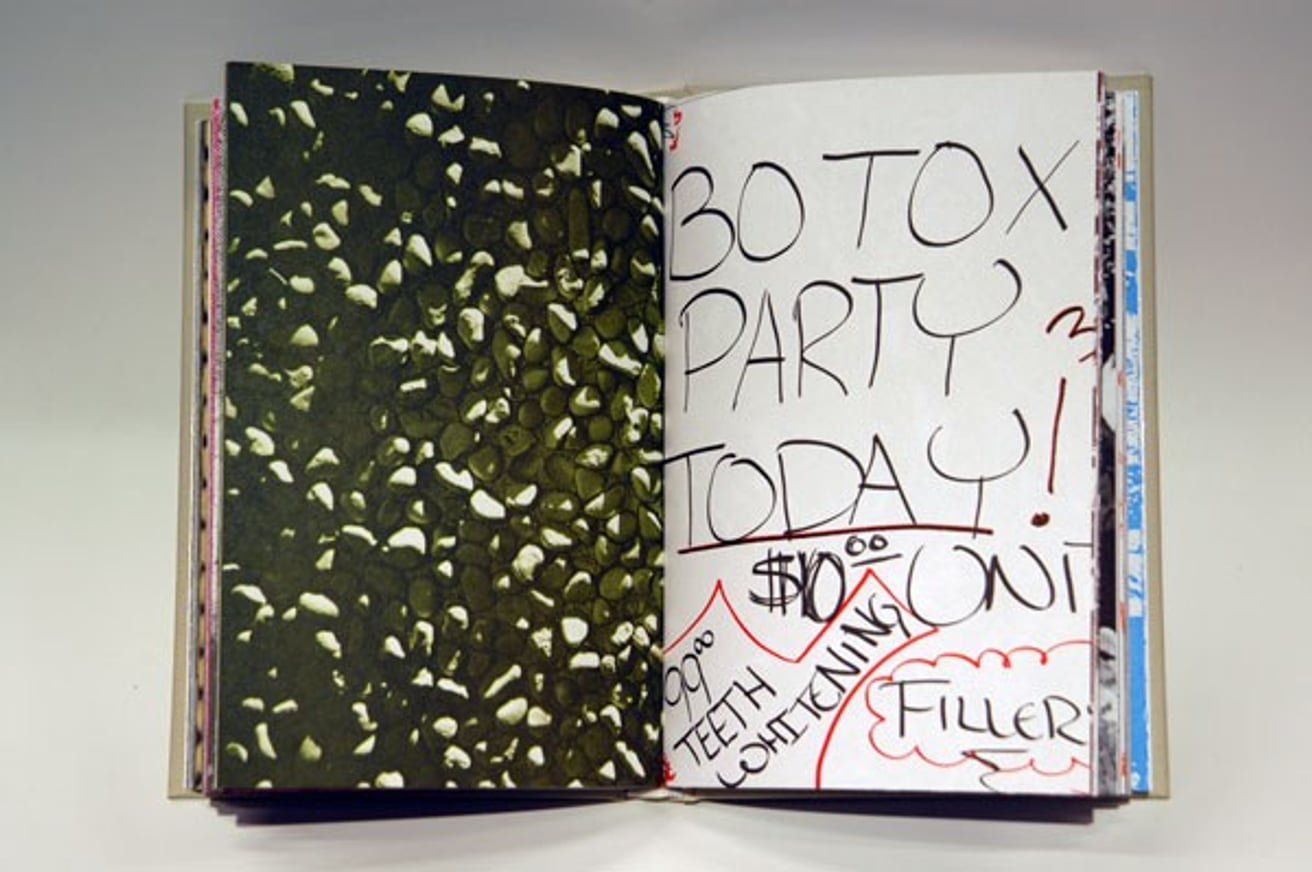 BOTOX
PARTY
TODAY!
$10.00 UNIT
99.00
TEETH
WHITENING
FILLER